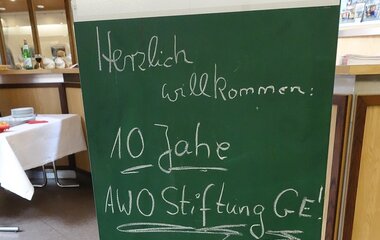 Herzlich
willkommen:
10 Jahe
AWO Stiftung GE!